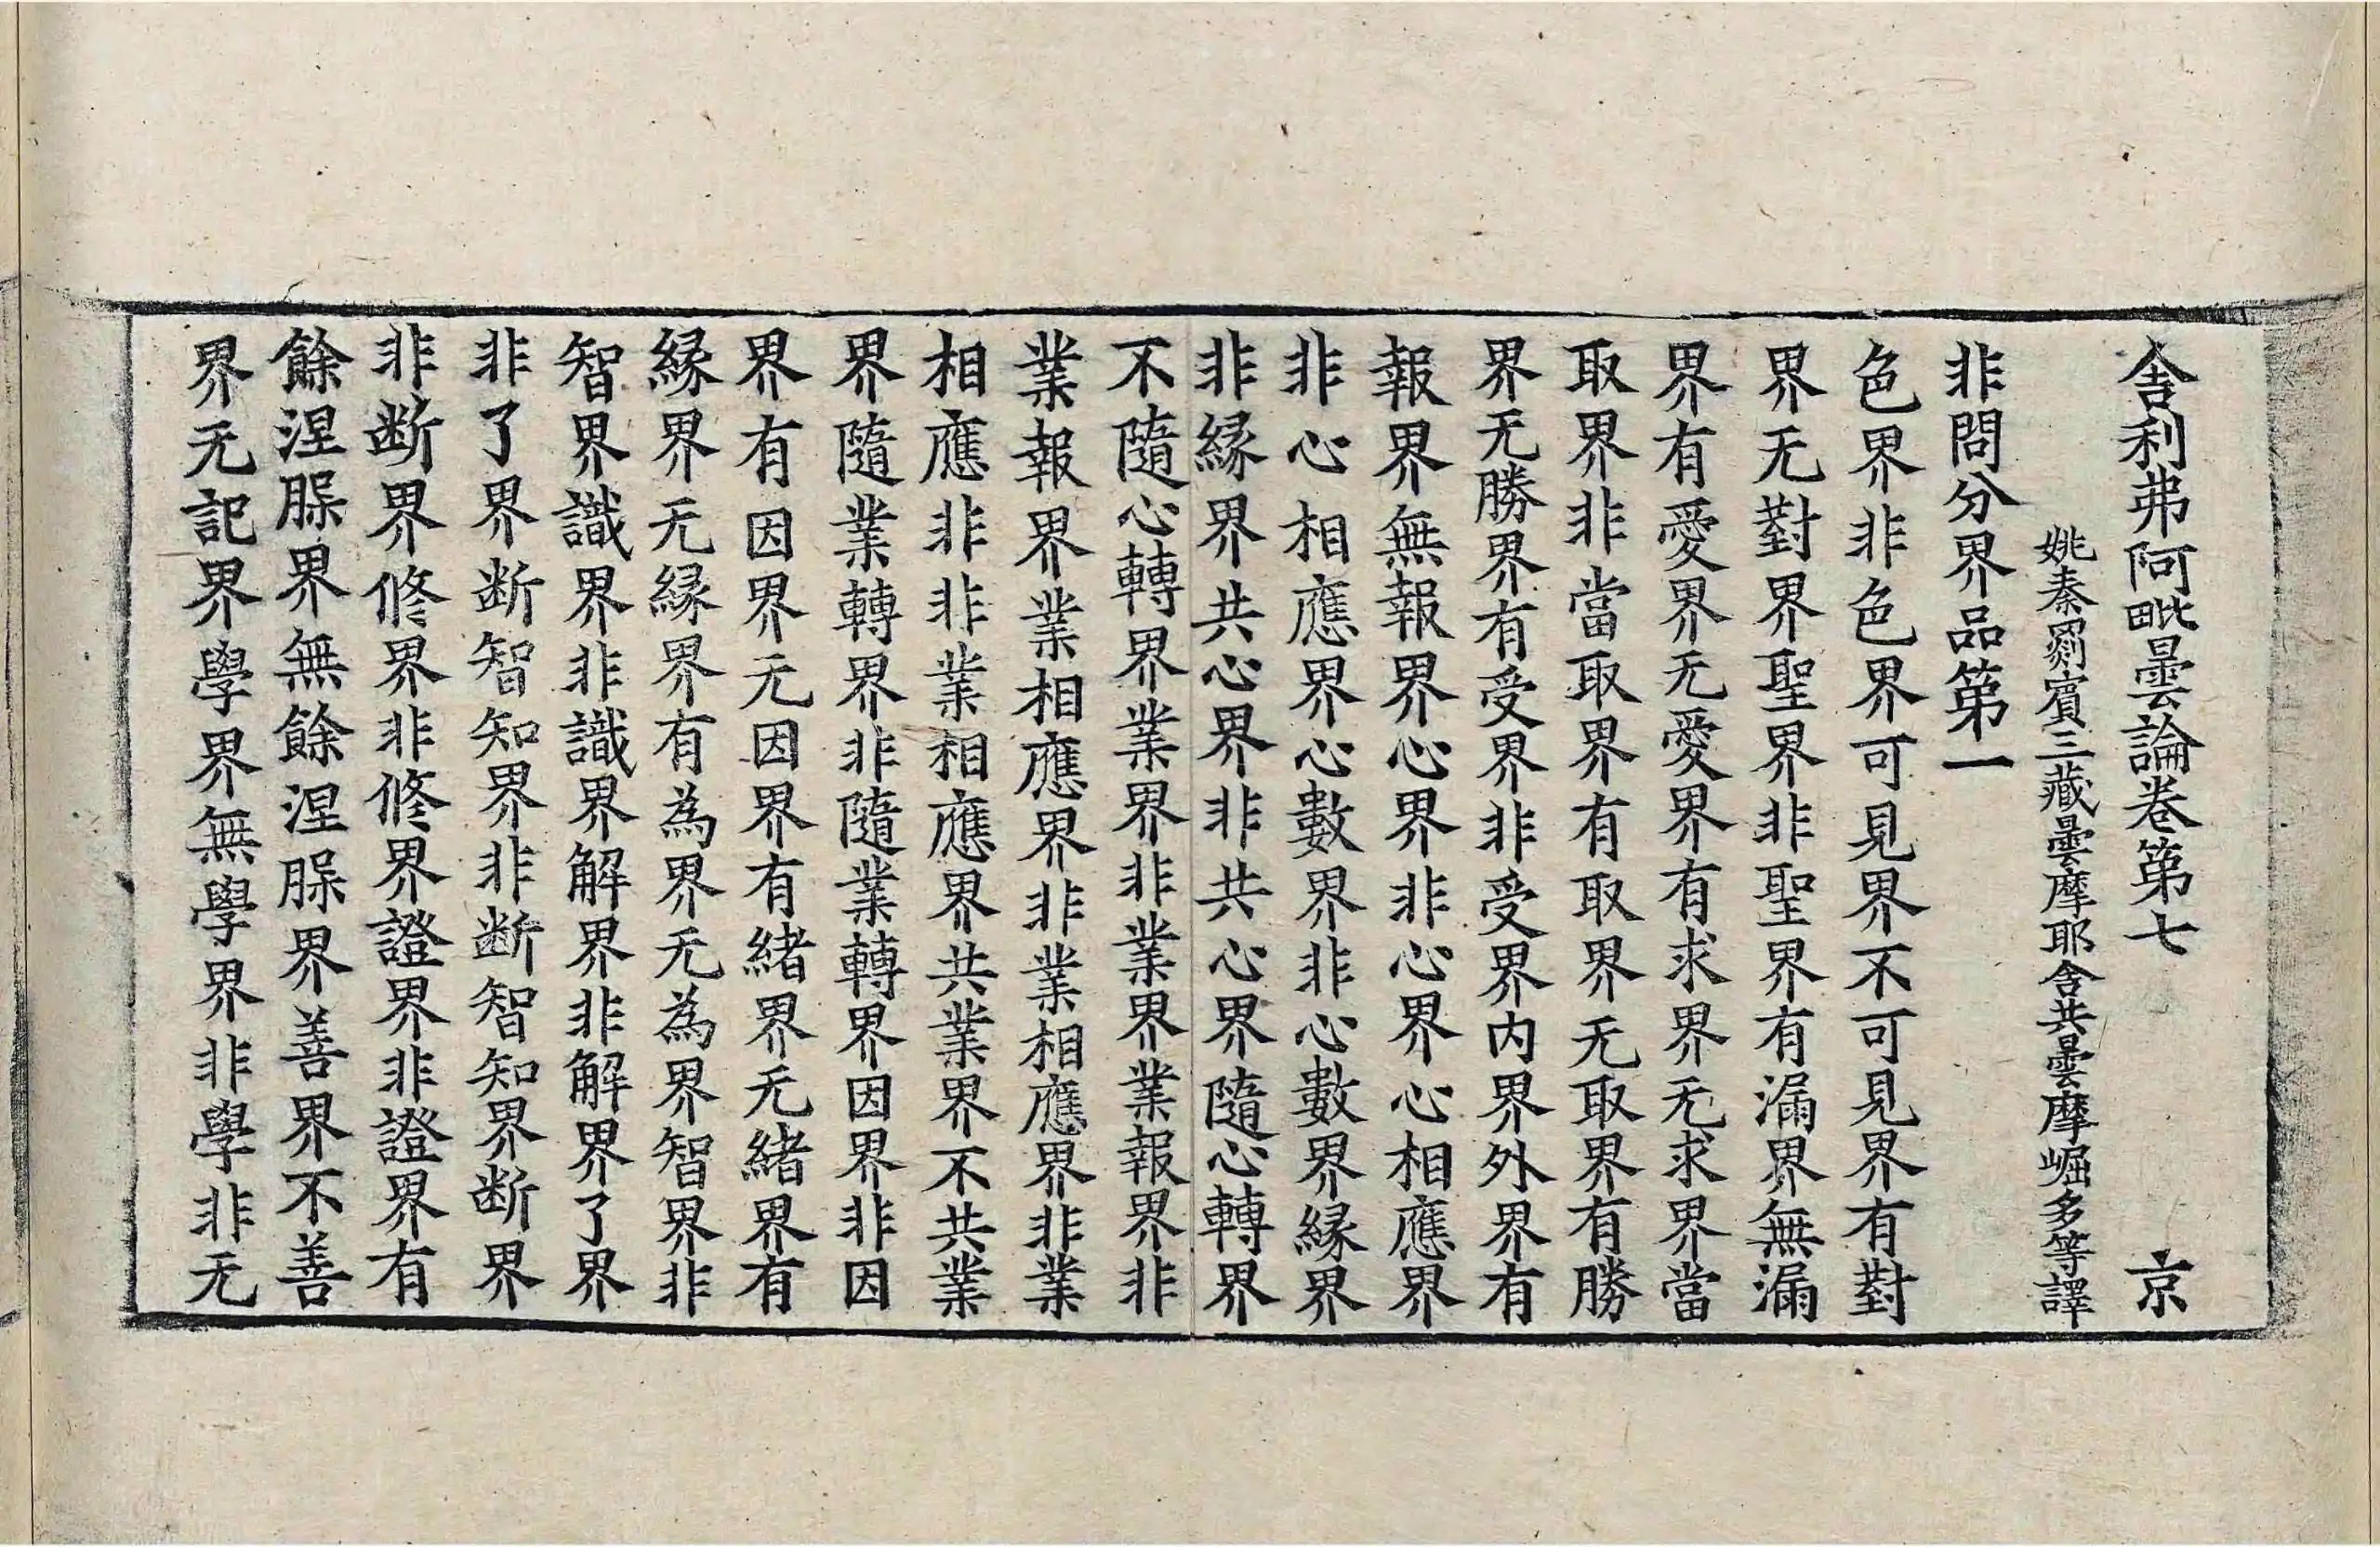 舍利弗阿毗曇論卷第七 京
姚秦罽賓三藏曇摩耶舍共曇摩崛多等譯
非問分界品第一
色界非色界可見界不可見界有對
界无對界聖界非聖界有漏界無漏
界有愛界无愛界有求界无求界當
取界非當取界有取界无取界有勝
界无勝界有受界非受界内界外界有
報界無報界心界非心界心相應界
非心相應界心數界非心數界緣界
非緣界共心界非共心界隨心轉界
不隨心轉界業界非業界業報界非
業報界業相應界非業相應界非業
相應非非業相應界共業界不共業
界隨業轉界非隨業轉界因界非因
界有因界无因界有緒界无緒界有
緣界无緣界有為界无為界智界非
智界識界非識界解界非解界了界
非了界断智知界非断智知界断界
非断界修界非修界證界非證界有
餘涅槃界無餘涅槃界善界不善
界无記界學界無學界非學非无